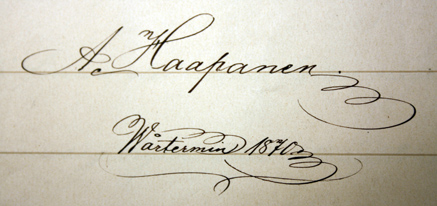 A. Haapanen.
Wårtermin 1870